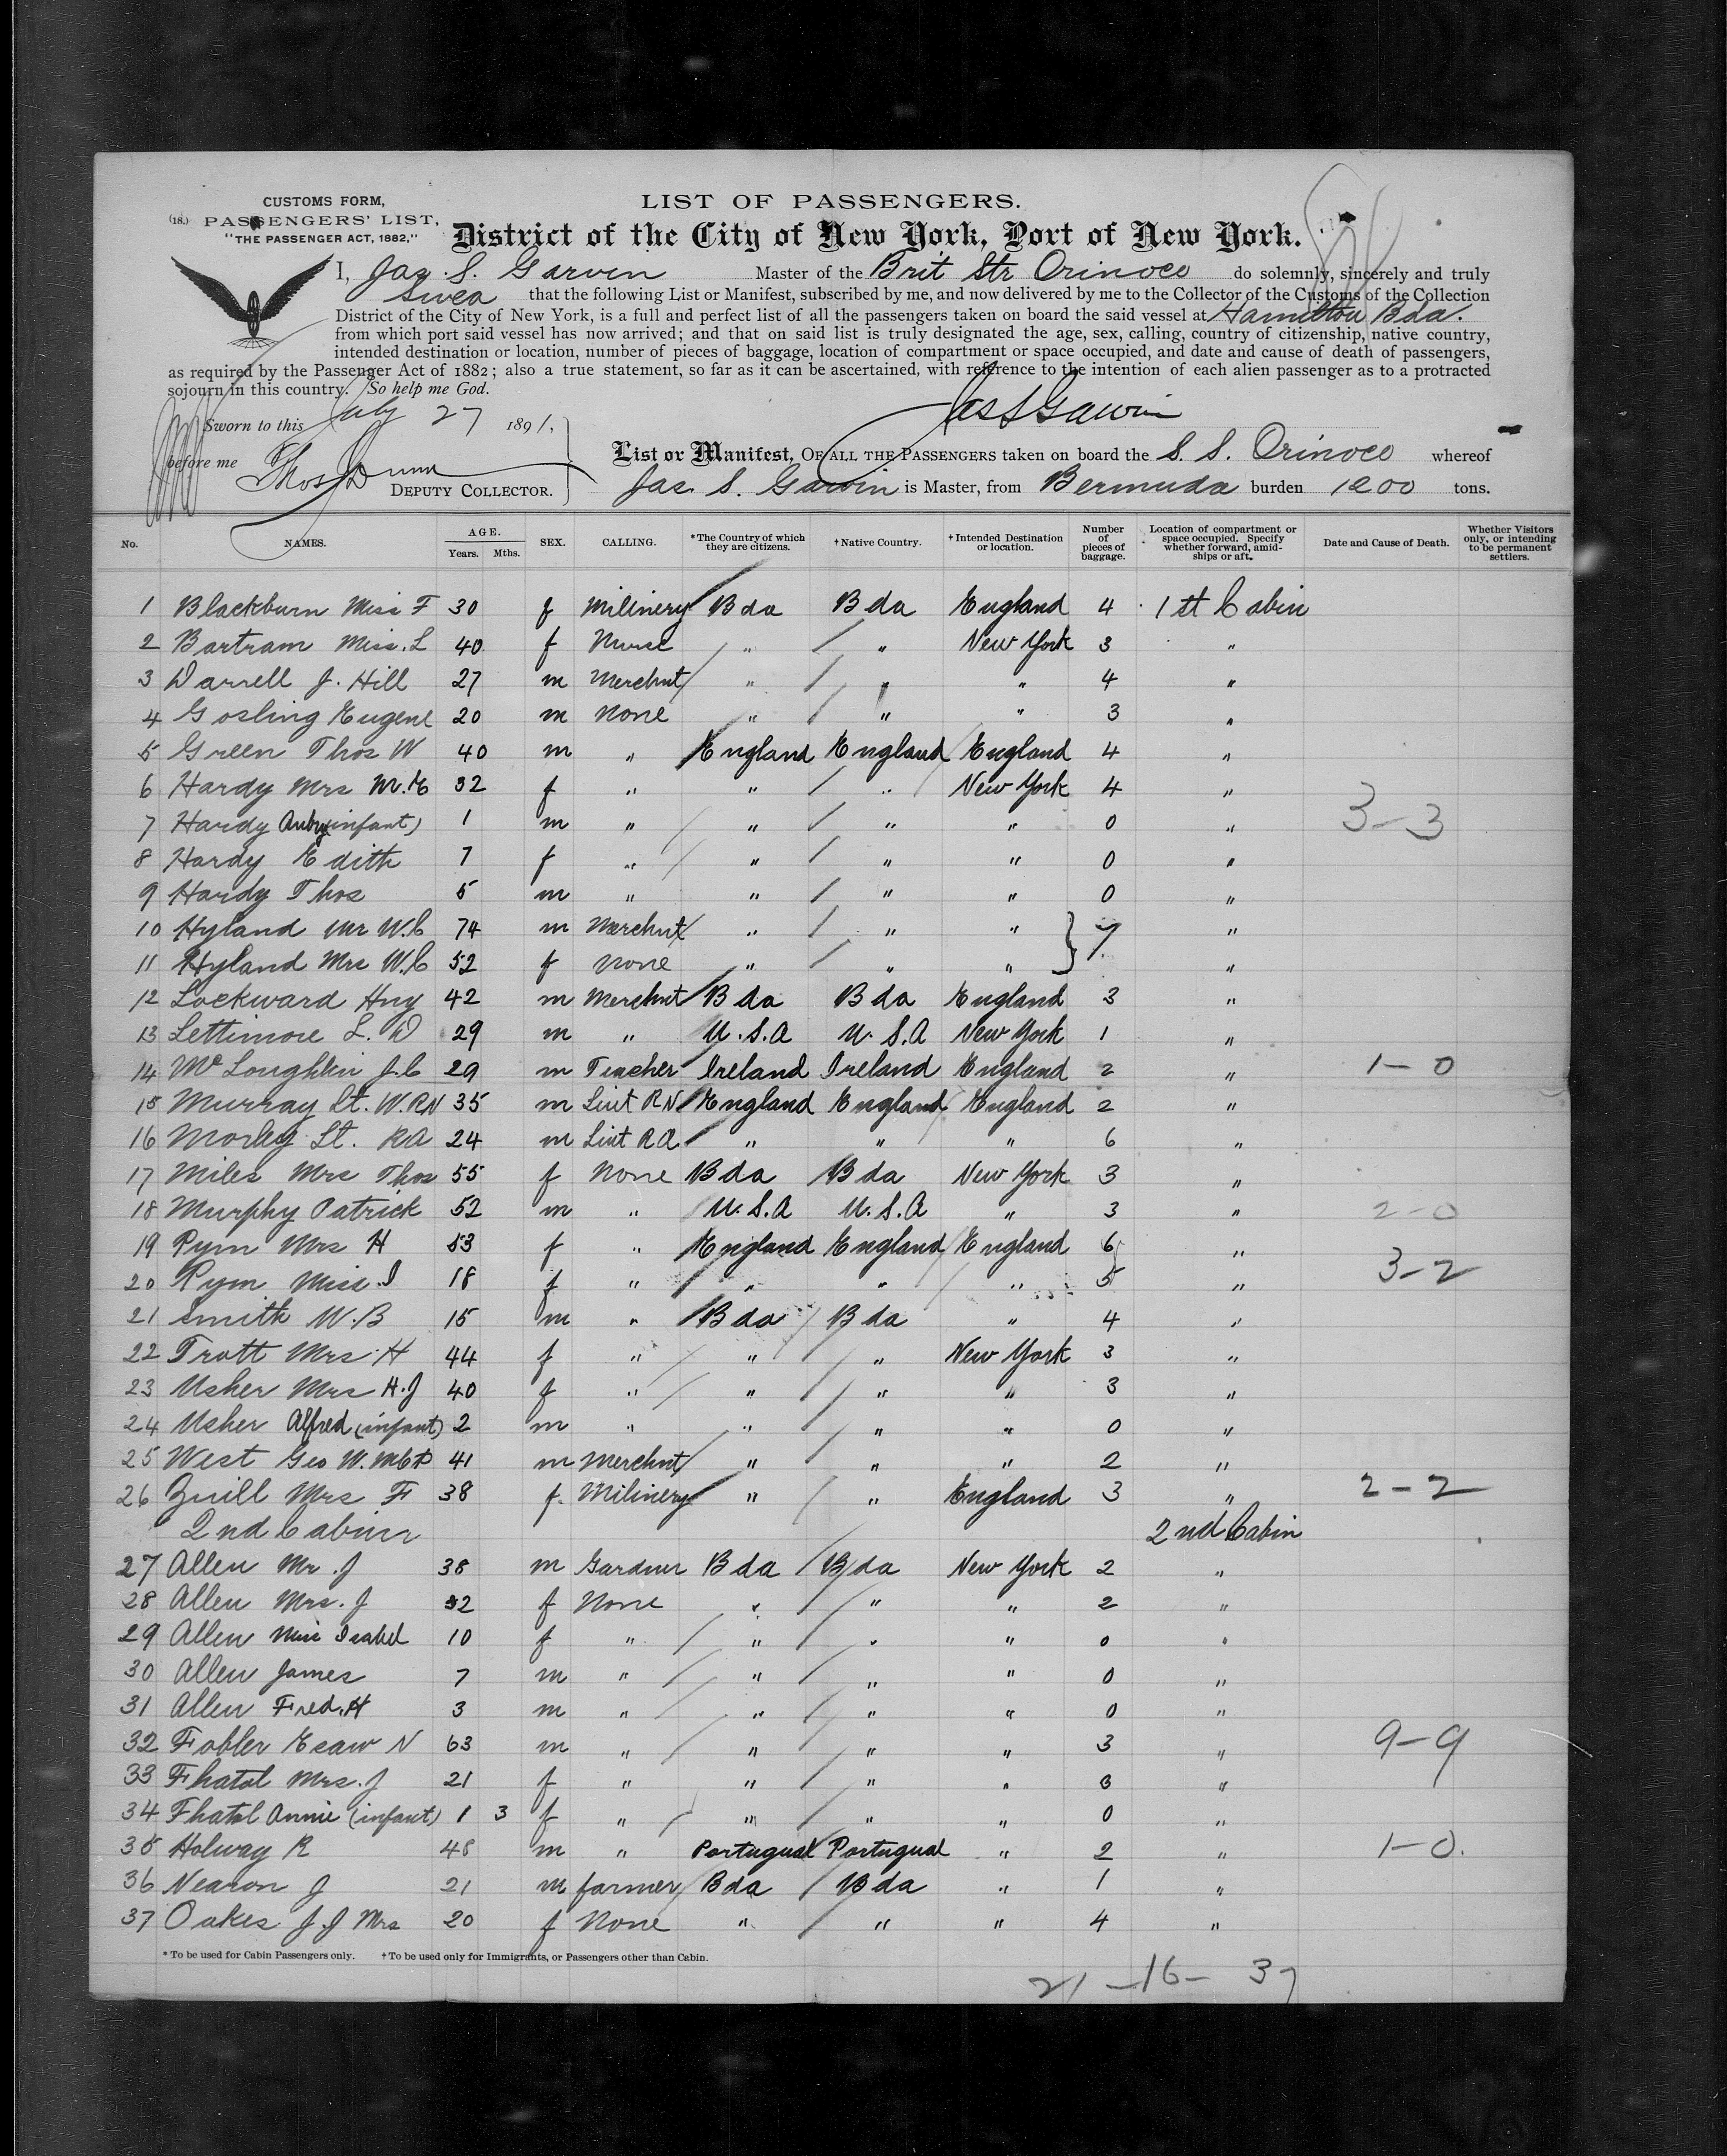 CUSTOMS FORM,
(18.) PASSENGERS' LIST,
"THE PASSENGER ACT, 1882,"
LIST OF PASSENGERS.
District of the City of New York, Port of New York.
I, Jas. S. Garvin Master of the Brit Str Orinoco do solemnly, sincerely and truly
Swea that the following List or Manifest, subscribed by me, and now delivered by me to the Collector of the Customs of the Collection
District of the City of New York, is a full and perfect list of all the passengers taken on board the said vessel at Hamilton Bda.
from which port said vessel has now arrived; and that on said list is truly designated the age, sex, calling, country of citizenship, native country,
intended destination or location, number of pieces of baggage, location of compartment or space occupied, and date and cause of death of passengers,
as required by the Passenger Act of 1882; also a true statement, so far as it can be ascertained, with reference to the intention of each alien passenger as to a protracted
sojourn in this country. So help me God.
Jas S Garvin
Sworn to this July 27 1891,
before me Thos Dunn
DEPUTY COLLECTOR.
List or Manifest, OF ALL THE PASSENGERS taken on board the S. S. Orinoco whereof
Jas. S. Garvin is Master, from Bermuda burden 1200 tons.
No. NAMES. AGE. Years. Mths. SEX. CALLING. *The Country of which they are citizens. †Native Country. †Intended Destination or location. Number of pieces of baggage. Location of compartment or space occupied. Specify whether forward, amidships or aft. Date and Cause of Death. Whether Visitors only, or intending to be permanent settlers.
1 Blackburn Miss F 30 f Milinery Bda Bda England 4 1st Cabin
2 Bartram Miss. L 40 f Nurse " " New York 3 "
3 Darrell J. Hill 27 m Merchnt " " " 4 "
4 Gosling Eugene 20 m None " " " 3 "
5 Green Thos W 40 m " England England England 4 "
6 Hardy Mrs M.E 32 f " " " New York 4 "
7 Hardy Aubry (infant) 1 m " " " " 0 " 3-3
8 Hardy Edith 7 f " " " " 0 "
9 Hardy Thos 5 m " " " " 0 "
10 Hyland Mr W.C 74 m Merchnt " " " } 7 "
11 Hyland Mrs W.C 52 f None " " " "
12 Lockward Hny 42 m Merchnt Bda Bda England 3 "
13 Lettimore L. D 29 m " U.S.A U.S.A New York 1 "
14 McLoughlin J.C 29 m Teacher Ireland Ireland England 2 " 1-0
15 Murray Lt. W. RN 35 m Liut RN England England England 2 "
16 Morley Lt. RA 24 m Liut RA " " " 6 "
17 Miles Mrs Thos 55 f None Bda Bda New York 3 "
18 Murphy Patrick 52 m " U.S.A U.S.A " 3 " 2-0
19 Pym Mrs H 53 f " England England England 6 "
20 Pym Miss. I 18 f " " " " 5 " 3-2
21 Smith W.B 15 m " Bda Bda " 4 "
22 Trott Mrs H 44 f " " " New York 3 "
23 Usher Mrs H.J 40 f " " " " 3 "
24 Usher Alfred (infant) 2 m " " " " 0 "
25 West Geo W. 41 m Merchnt " " " 2 "
26 Zuill Mrs F 38 f. Milinery " " England 3 " 2-2
2nd Cabin 2nd Cabin
27 Allen Mr. J 38 m Gardner Bda Bda New York 2 "
28 Allen Mrs. J 32 f None " " " 2 "
29 Allen Miss Isabel 10 f " " " " 0 "
30 Allen James 7 m " " " " 0 "
31 Allen Fred. H 3 m " " " " 0 "
32 Fobler Esaw N 63 m " " " " 3 " 9-9
33 Fhatol Mrs. J 21 f " " " " 3 "
34 Fhatol Annie (infant) 1 3 f " " " " 0 "
35 Holway R 48 m " Portugual Portugual " 2 " 1-0.
36 Nearon J 21 m farmer Bda Bda " 1 "
37 Oakes J.J Mrs 20 f None " " " 4 "
*To be used for Cabin Passengers only. †To be used only for Immigrants, or Passengers other than Cabin.
21-16- 37